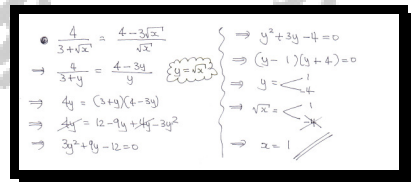 • 4/(3+√x) = (4-3√x)/√x
⇒ 4/(3+y) = (4-3y)/y   y=√x
⇒ 4y = (3+y)(4-3y)
⇒ 4y = 12-9y+4y-3y²
⇒ 3y²+9y-12=0
⇒ y²+3y-4=0
⇒ (y-1)(y+4)=0
⇒ y = < 1 -4
⇒ √x = < 1 -4
⇒ x = 1